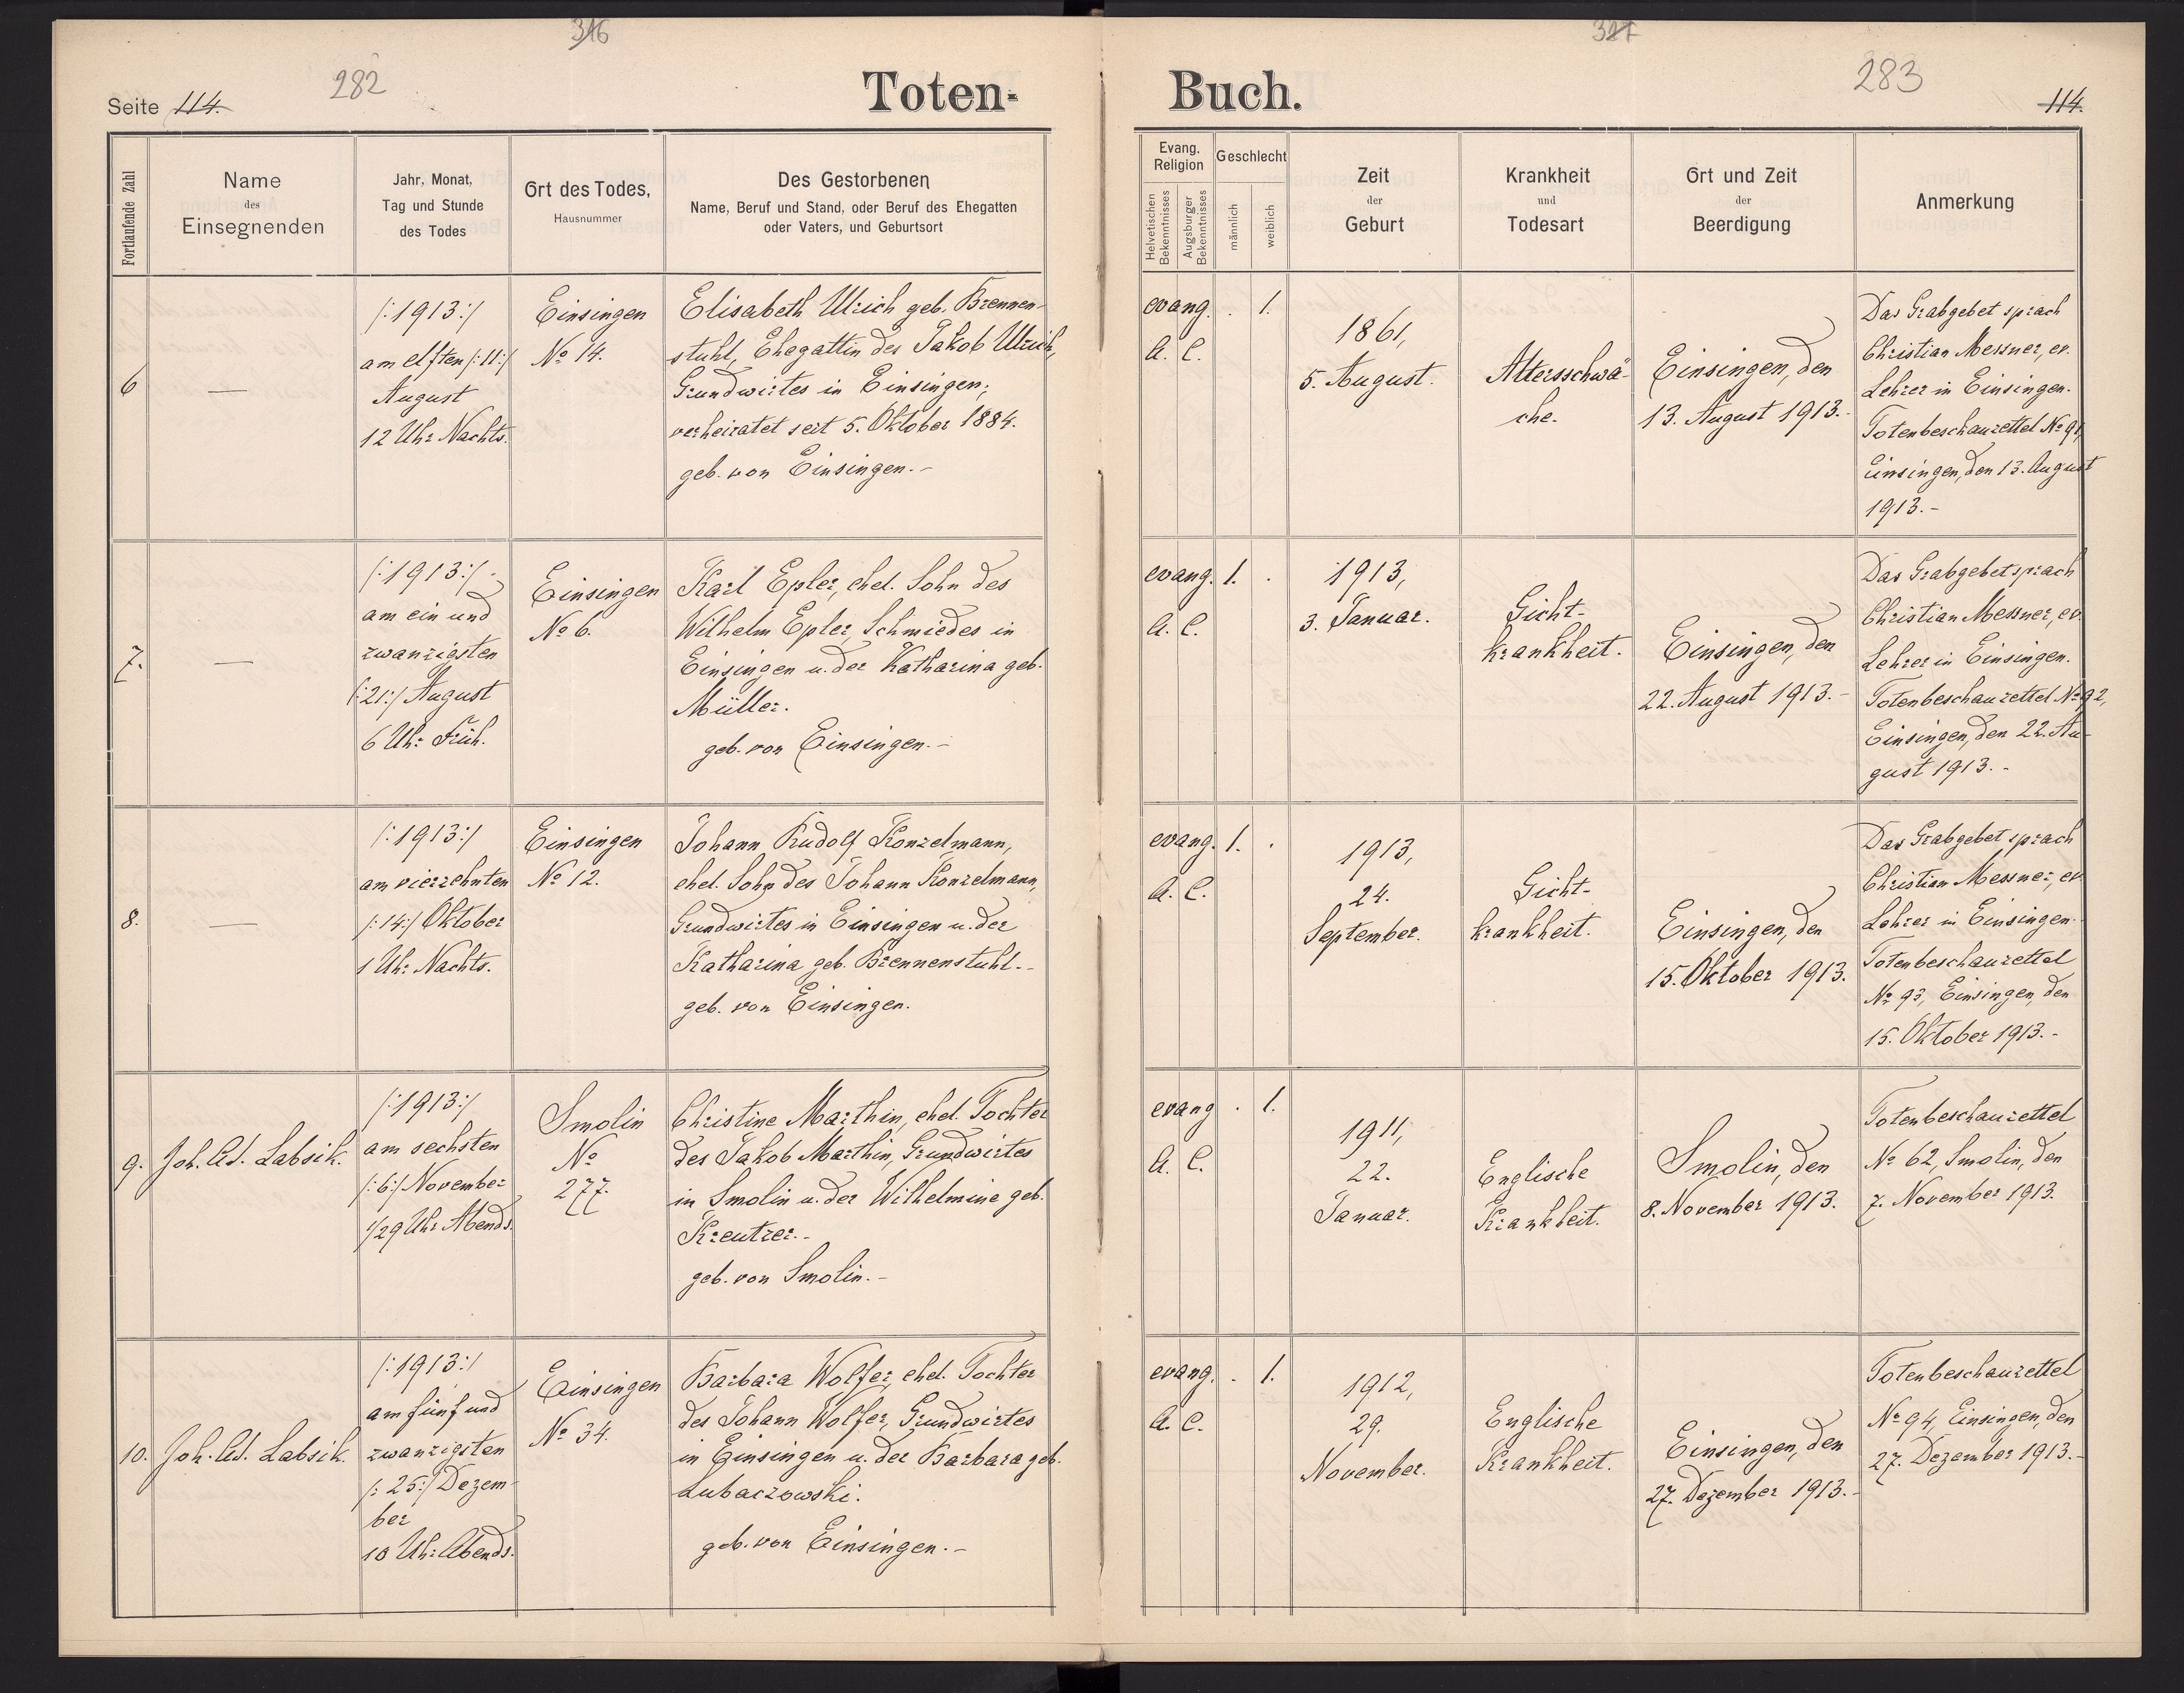 316
282
Seite 114.
Toten-
Fortlaufende Zahl
Name
des
Einsegnenden
Jahr, Monat,
Tag und Stunde
des Todes
Ort des Todes,
Hausnummer
Des Gestorbenen
Name, Beruf und Stand, oder Beruf des Ehegatten
oder Vaters, und Geburtsort
6
—
/:1913:/
am elften /:11:/
August
12 Uhr Nachts.
Einsingen
No 14.
Elisabeth Ulrich geb. Brennen-
stuhl, Ehegattin des Jakob Ulrich,
Grundwirtes in Einsingen;
verheiratet seit 5. Oktober 1884.
geb. von Einsingen.-
7.
—
/:1913:/
am ein und
zwanzigsten
/:21:/ August
6 Uhr Früh.
Einsingen
No 6.
Karl Epler, ehel. Sohn des
Wilhelm Epler, Schmiedes in
Einsingen u. der Katharina geb.
Müller.
geb. von Einsingen.-
8.
—
/:1913:/
am vierzehnten
/:14:/ Oktober
1 Uhr Nachts.
Einsingen
No 12.
Johann Rudolf Konzelmann,
ehel. Sohn des Johann Konzelmann,
Grundwirtes in Einsingen u. der
Katharina geb. Brennenstuhl.-
geb. von Einsingen.
9.
Joh. Ad. Labsik.
/:1913:/
am sechsten
/:6:/ November
1/29 Uhr Abends.
Smolin
No
277.
Christine Marthin, ehel. Tochter
des Jakob Marthin, Grundwirtes
in Smolin u. der Wilhelmine geb.
Kreutzer.-
geb. von Smolin.-
10.
Joh. Ad. Labsik.
/:1913:/
am fünf und
zwanzigsten
/:25:/ Dezem-
ber
10 Uhr Abends.
Einsingen
No 34.
Barbara Wolfer, ehel. Tochter
des Johann Wolfer, Grundwirtes
in Einsingen u. der Barbara geb.
Lubaczowski.
geb. von Einsingen.-
317
283
Buch.
114.
Evang.
Religion
Helvetischen
Bekenntnisses
Augsburger
Bekenntnisses
Geschlecht
männlich
weiblich
Zeit
der
Geburt
Krankheit
und
Todesart
Ort und Zeit
der
Beerdigung
Anmerkung
evang.
A. C.
. 1.
1861,
5. August.
Altersschwä-
che.
Einsingen, den
13. August 1913.-
Das Grabgebet sprach
Christian Messner, ev.
Lehrer in Einsingen.
Totenbeschauzettel No 91,
Einsingen, den 13. August
1913.-
evang.
A. C.
1. .
1913,
3. Januar.
Gicht-
krankheit.
Einsingen, den
22. August 1913.-
Das Grabgebet sprach
Christian Messner, ev.
Lehrer in Einsingen.
Totenbeschauzettel No 92,
Einsingen, den 22. Au-
gust 1913.-
evang.
A. C.
1. .
1913,
24.
September.
Gicht-
krankheit.
Einsingen, den
15. Oktober 1913.
Das Grabgebet sprach
Christian Messner, ev.
Lehrer in Einsingen.
Totenbeschauzettel
No 93, Einsingen, den
15. Oktober 1913.-
evang
A. C.
. 1.
1911,
22.
Januar.
Englische
Krankheit.
Smolin, den
8. November 1913.
Totenbeschauzettel
No 62, Smolin, den
7. November 1913.
evang.
A. C.
. 1.
1912,
29.
November.
Englische
Krankheit.
Einsingen, den
27. Dezember 1913.-
Totenbeschauzettel
No 94, Einsingen, den
27. Dezember 1913.-